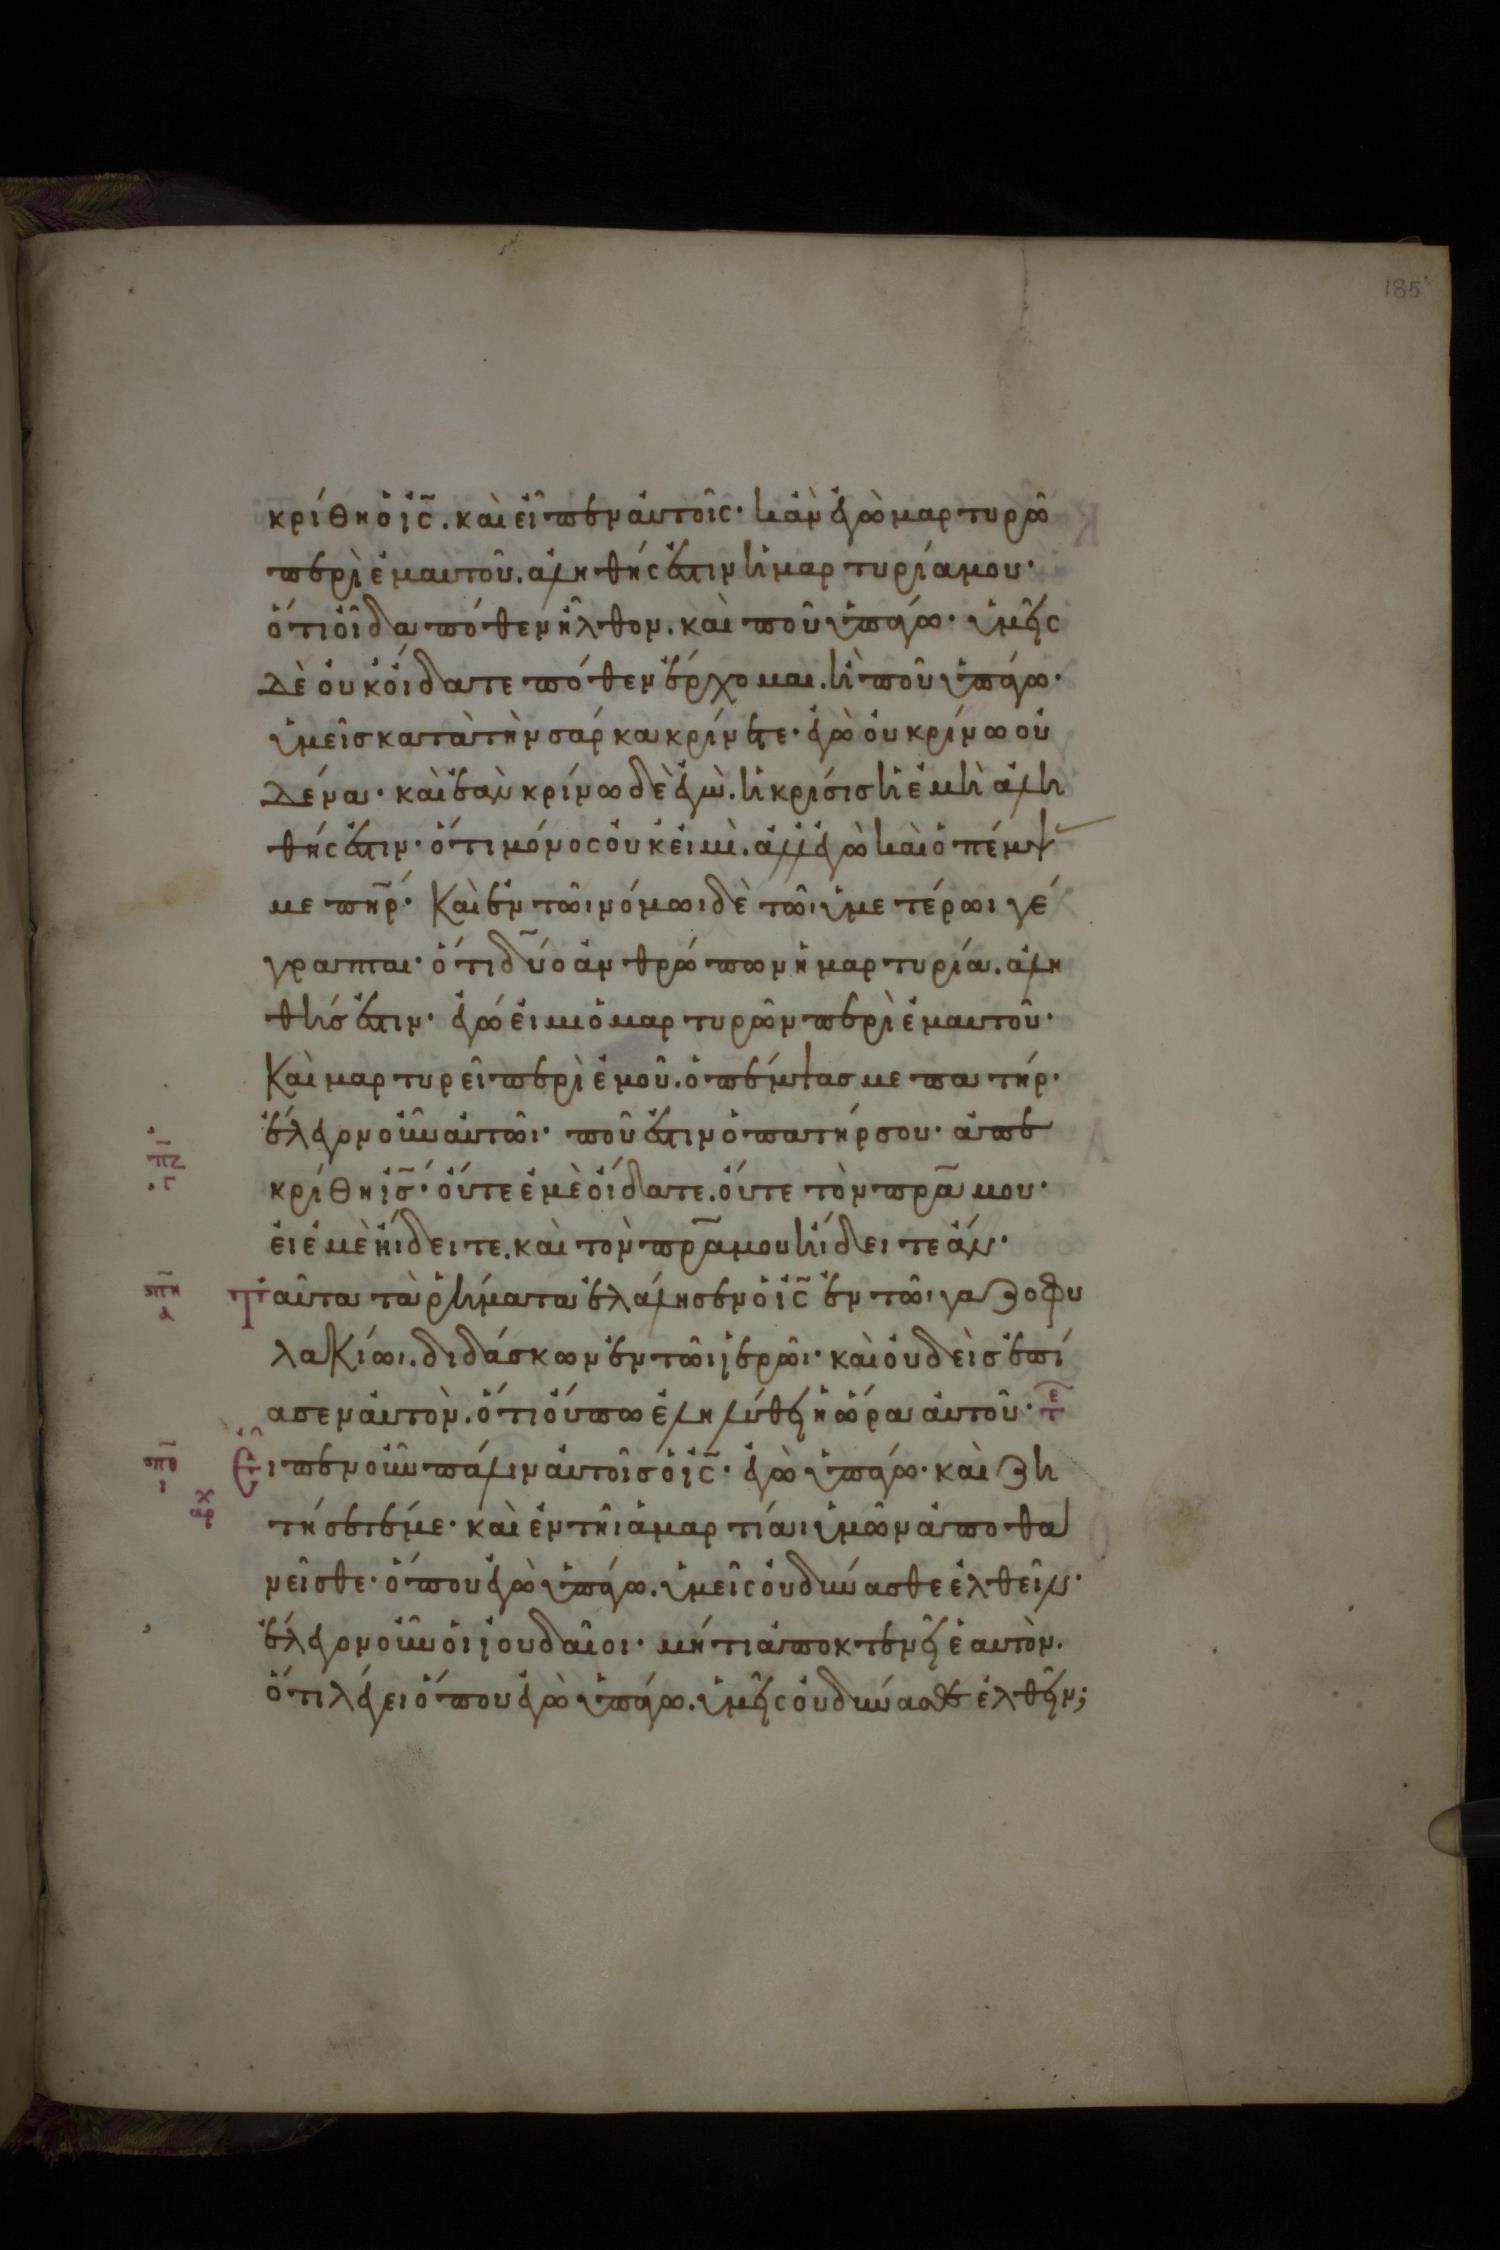 185
κρίθη ὁ ἰς̅. καὶ εἶπεν αὐτοῖς· κἂν ἐγὼ μαρτυρῶ
περὶ ἐμαυτοῦ. ἀληθής ἐστιν ἡ μαρτυρία μου·
ὅτι οἶδα πόθεν ἦλθον. καὶ ποῦ ὑπάγω· ὑμεῖς
δὲ οὐκ οἴδατε πόθεν ἔρχομαι. ἢ ποῦ ὑπάγω·
ὑμεῖς κατὰ τὴν σάρκα κρίνετε· ἐγὼ οὐ κρίνω οὐ
δένα· καὶ ἐὰν κρίνω δὲ ἐγὼ. ἡ κρίσις ἡ ἐμὴ ἀλη
θής ἐστιν· ὅτι μόνος οὐκ εἰμὶ. ἀλλ ἐγὼ καὶ ὁ πέμψ
με πη̅ρ· Καὶ ἐν τῶι νόμωι δὲ τῶι ὑμετέρωι γέ
γραπται· ὅτι δύο ἀνθρώπων ἡ μαρτυρία. ἀλη
θής ἐστιν· ἐγώ εἰμι ὁ μαρτυρῶν περὶ ἐμαυτοῦ·
Καὶ μαρτυρεῖ περὶ ἐμοῦ. ὁ πέμψας με πατήρ·
ἔλεγον οὖν αὐτῶι· ποῦ ἐστιν ὁ πατήρ σου· ἀπε
κρίθη ἰσ̅· οὔτε ἐμὲ οἴδατε. οὔτε τὸν πρα̅ μου·
εἰ ἐμὲ ἤιδειτε. καὶ τὸν πρα̅ μου ἤιδειτε ἄν·
Ταῦτα τὰ ῥήματα ἐλάλησεν ὁ ἰς̅ ἐν τῶι γαζοφυ
λακίωι. διδάσκων ἐν τῶι ἱερῶι· καὶ οὐδεὶς ἐπί
ασεν αὐτὸν. ὅτι οὔπω ἐληλύθει ἡ ὥρα αὐτοῦ·
Εἶπεν οὖν πάλιν αὐτοῖς ὁ ἰς̅· ἐγὼ ὑπάγω· καὶ ζη
τήσετέ με· καὶ ἐν τῆι ἁμαρτίαι ὑμῶν ἀποθα
νεῖσθε· ὅπου ἐγὼ ὑπάγω. ὑμεῖς οὐ δύνασθε ἐλθεῖν·
ἔλεγον οὖν οἱ ἰουδαῖοι· μήτι ἀποκτενεῖ ἑαυτὸν.
ὅτι λέγει ὅπου ἐγὼ ὑπάγω. ὑμεῖς οὐ δύνασθε ἐλθεῖν;